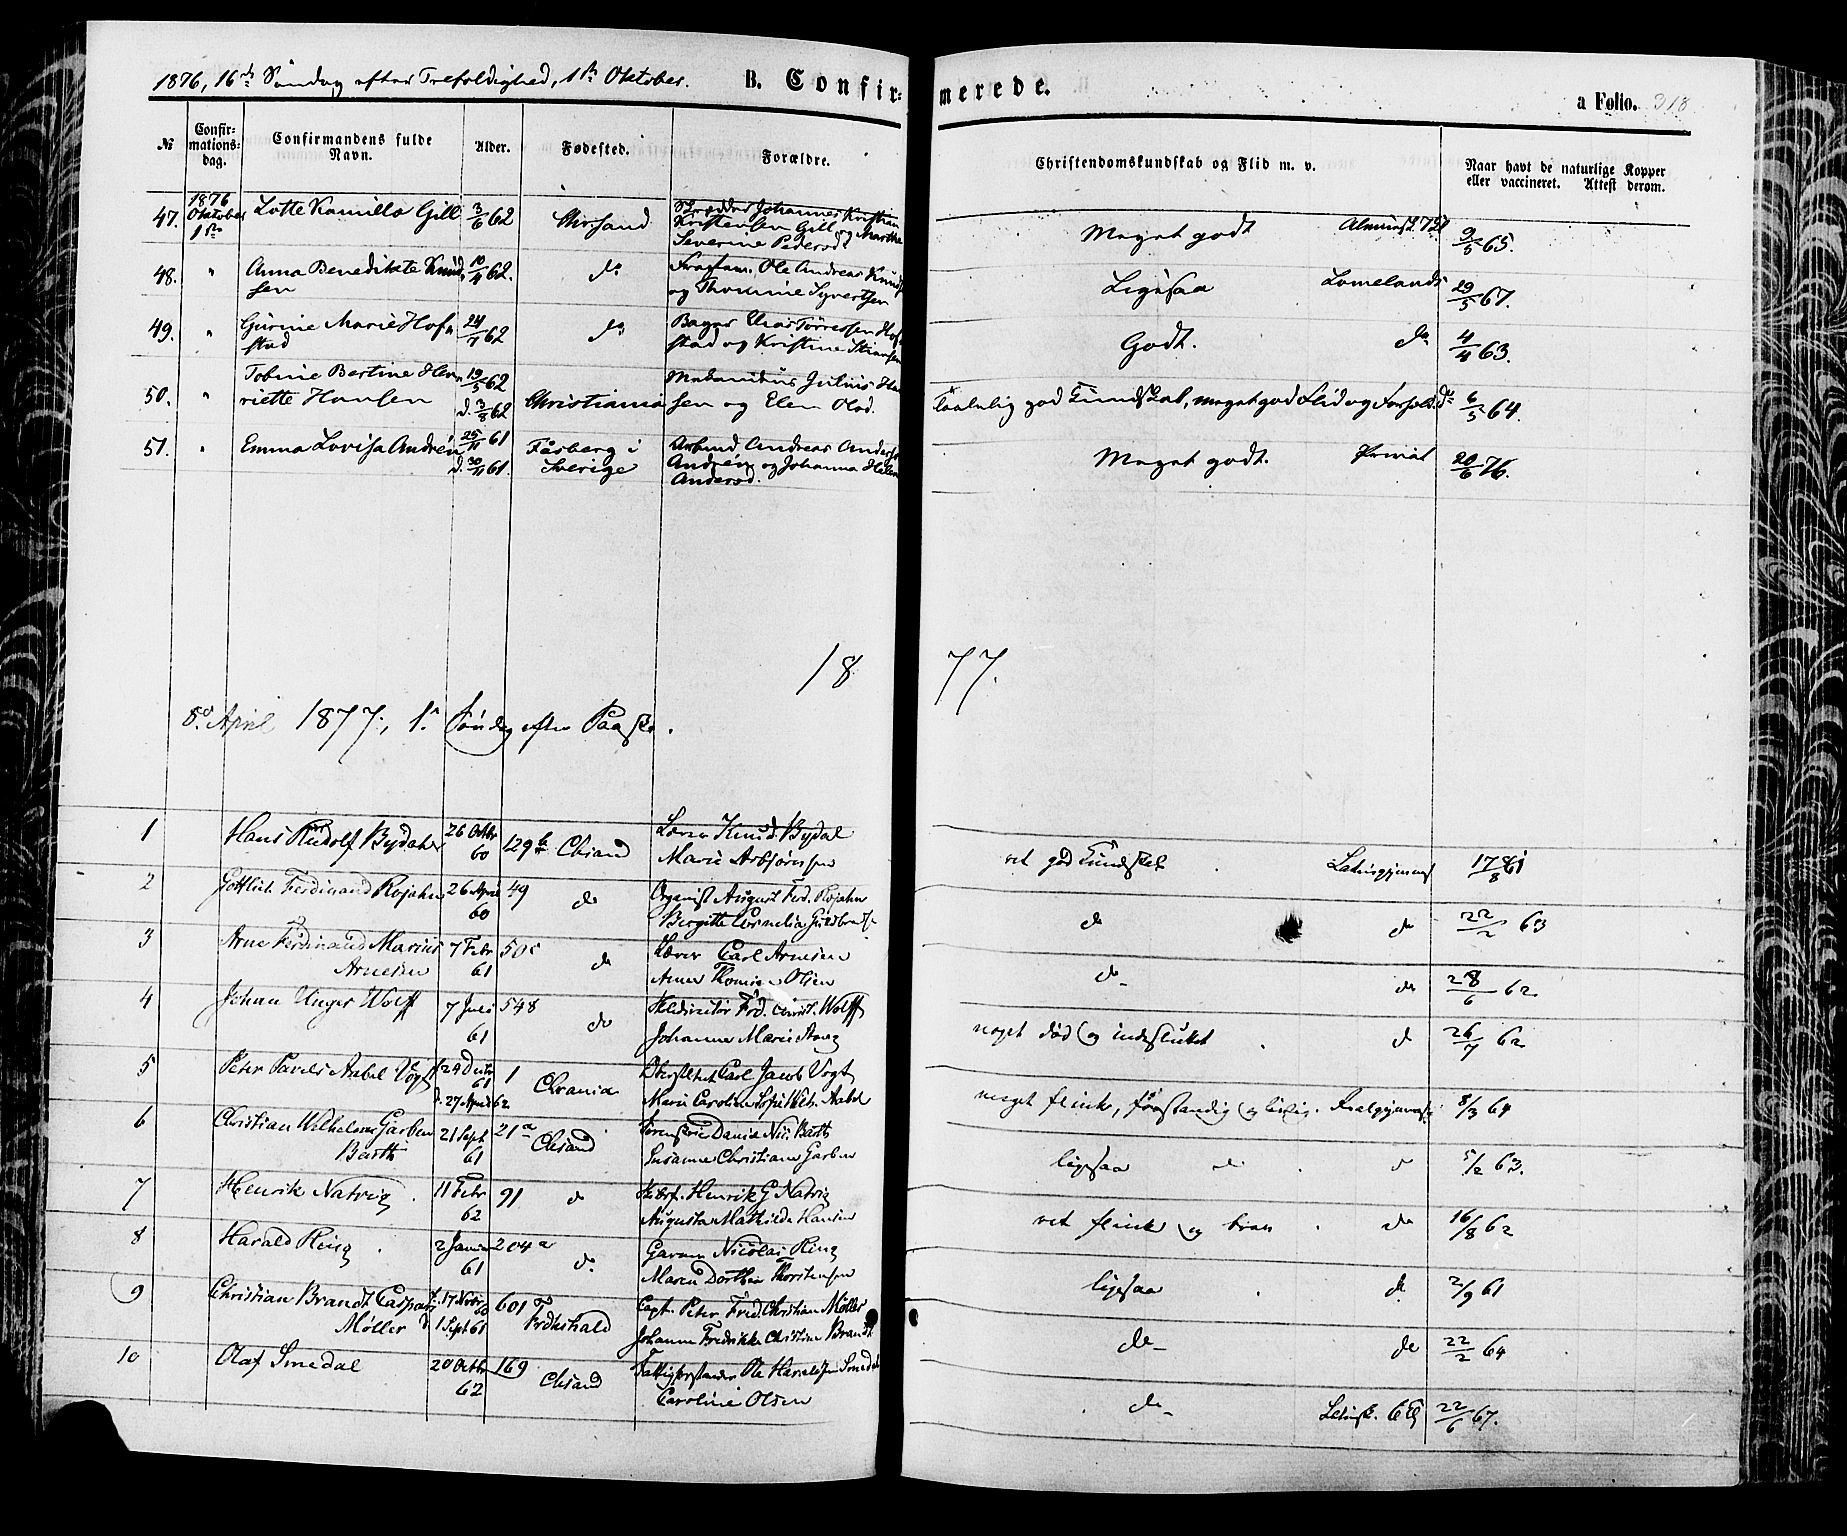 1876, 16de Søndag efter Trefoldighed, 1ste Oktober.
B. Confirmerede.
a Folio. 318
№
Confirmationsdag.
Confirmandens fulde Navn.
Alder.
Fødested.
Forældre.
Christendomskundskab og Flid m. v.
Naar havt de naturlige Kopper eller vaccineret. Attest derom.
47. 1876 Oktober 1ste Lotte Kamilla Gill 3/6 62 Chrsand Skrædder Johannes Kristian Kristensen Gill og Marthe Severine Pedersd. Meget godt 9/5 65.
48. " Anna Benedikte Knudsen 10/9 62. do Ole Andreas Knuds og Syvertsen Ligesaa Lomelands 29/5 67.
49. " Gurine Marie Hofstad 24/7 62 do Bager Tørressen Hofstad og Kristine Godt. do 4/4 63.
50. " Tobine Bertine Henriette Hansen 19/5 62 d. 3/8 62 Christiania Julius Hansen og Elen Olsd. Taalelig god Kundskab, meget god Flid og Forhold. do 6/5 64.
51. " Emma Lovisa Andrén 25/11 61 d. 30/11 61. Fårberg i Sverige Arbmd. Andreas Anders Andrén og Johanna Helen Andersd. Meget godt. Privat 20/6 76.
1877.
8de April 1877, 1ste Søndag efter Paaske.
1 Hans Rudolf Bydahl 26 Octbr 60 129b Chsand Lærer Knud Bydal Marie Asbjørnsen ret god Kundskab Latingymnas 17/8 61
2 Gottlieb Ferdinand Rojahn 26 April 60 49 do Organist August Ferd. Rojahn Bergitte Cornelia do do 22/2 63
3 Arne Ferdinand Marius Arnesen 7 Febr 61 50c do Lærer Carl Arnesen Anne Olsen do do 28/6 62
4 Johan Unger Wolff 7 Juli 61 548 do Frd. Christ. Wolff Johanne Marie noget død og indesluttet do 26/7 62
5 Peter Pavels Aabel Vogt f. 29 61 d. 27 April 62 1 Chrania Carl Jacob Vogt Marie Caroline Sofie Aabel meget flink, forstandig og livlig. Realgymnas 8/3 64
6 Christian Wilhelm Garben Barth 21 Sept 61 21a Chsand Barth Susanne Christiane Garben ligesaa do do 5/2 63.
7 Henrik Natvig 11 Febr 62 91 do Henrik G Natvig Augusta Mathilde Hansen ret flink og brav do 16/8 62
8 Harald Ring 2 Januar 61 204a do Garver Nicolai Ring Maren Dorthea Thorstensen ligesaa do 2/9 61
9 Christian Brandt Caspari Møller f. 17 Novbr 60 d. 1 Sept 61 601 Frdkshald Capt. Peter Fred. Christian Møller Johanne Fredrikke Christine Brandt do do 22/2 64
10 Olaf Smedal 20 Octbr 62 169 Chsand Fattigforstander Ole Haraldsen Smedal Caroline Olsen do 22/6 67.